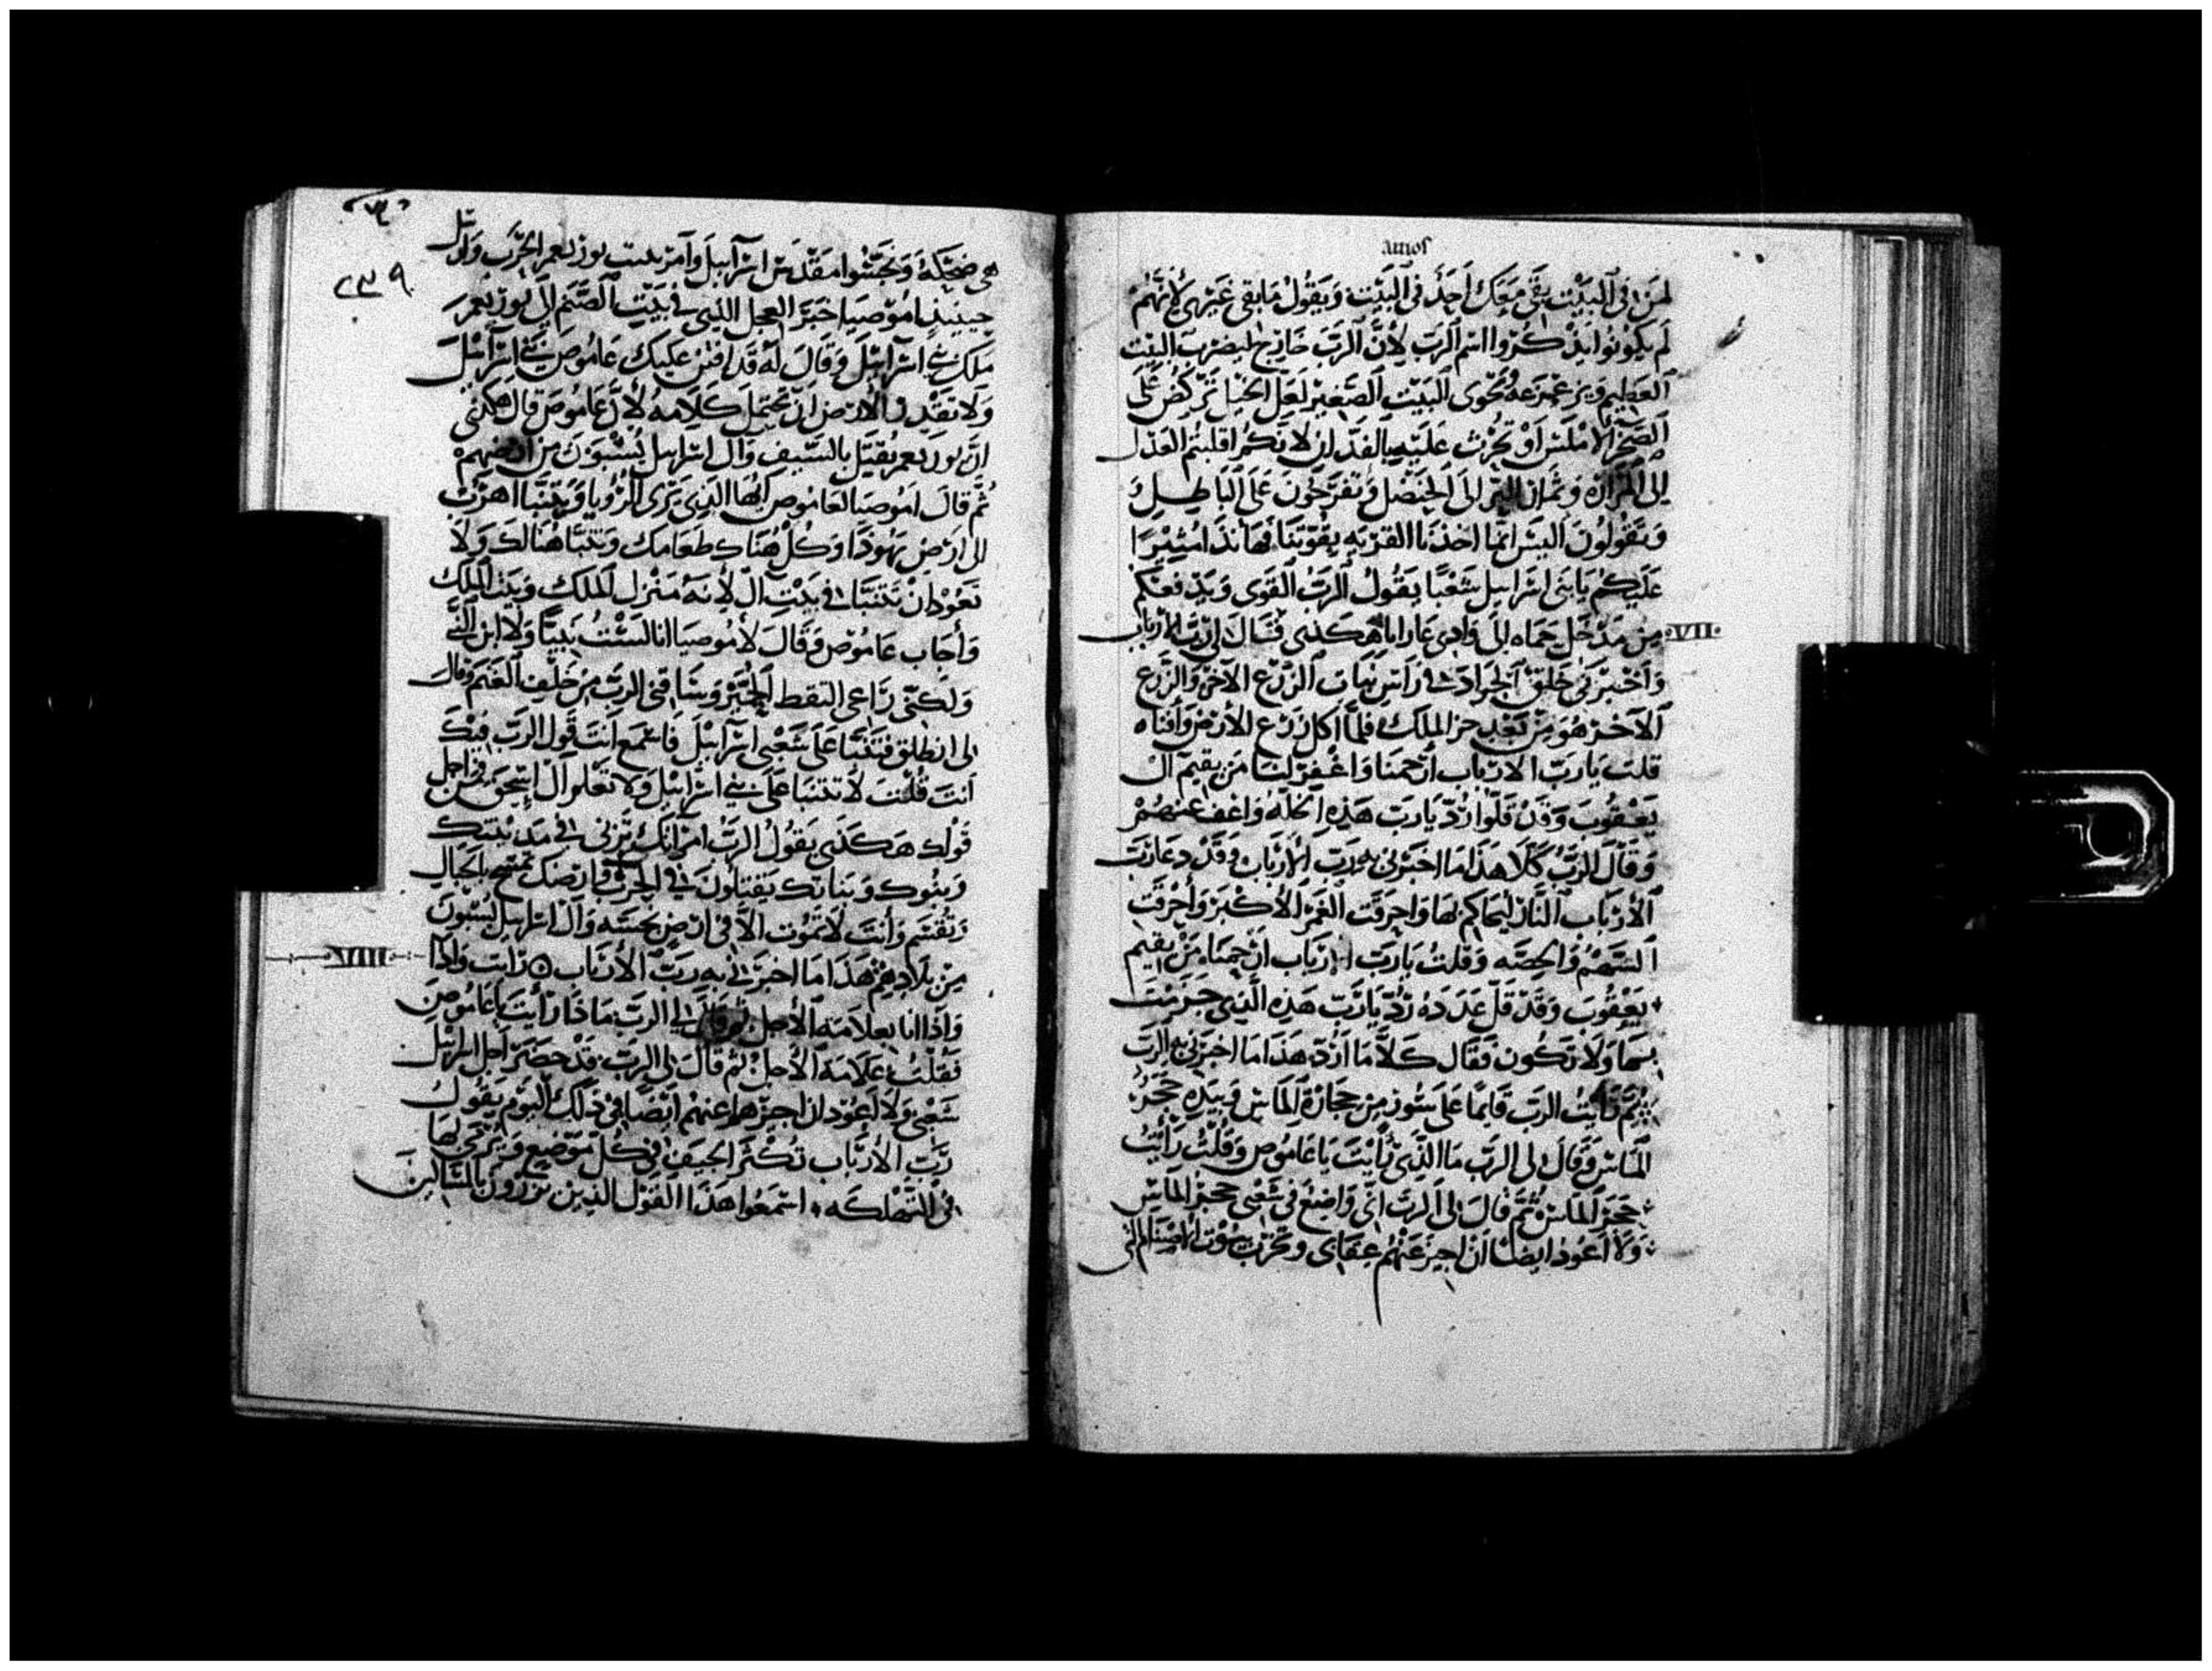 amos
لمن فى البيت بقى معك احد فى البيت ويقول ما بقى غيرى لانهم
لم يكونوا يذكروا اسم الرب لأن الرب خارج ليضرب البيت
العظيم ويزعزعه البيت الصغير لعل الخيل تركض على
الصخر الاملس او تحرث عليه لانكم اقلبتم العدل
الى المرارة وثمار البر الى الحنضل وتفرحون على الباطل
وتقولون اليس انما اخذنا القريه بقوتنا فهانذا مثيرا
عليكم يابنى اسرايل شعبا يقول الرب القوى ويدفعكم
VII
من مدخل حماه الى وادى عارابا هكذى قال لى رب الارباب
واخبرنى خلق الجراد فى راس نبات الزرع الآخر والزرع
الآخر هو من بعد جز الملك فلما اكل زرع الأرض وأفناه
قلت يارب الارباب ارحمنا واغفر لنا من يقيم ال
يعقوب وقد قلوا رد يارب هذه الخله واعف عنهم
وقال الرب كلا هذا ما اخبرنى به رب الأرباب وقد دعا رب
الأرباب النار ليحاكم لها واحرقت الغمر الأكبر وأحرقت
السهم والحصه وقلت يارب ارباب ارحمنا من يقيم
يعقوب وقد قل عدده رد يارب هذه الذى حرمت
بسما ولا تكون فقال كلا ما ارد هذا ما اخبرنى به الرب
ثم رايت الرب قايما على سور من حجارة الماس وبيده حجر
الماس وقال لى الرب ما الذى رأيت ياعاموص وقلت رأيت
حجر الماس ثم قال لى الرب انى واضع فى شعبى حجر الماس
ولا اعود ايضا ان اجيز عنهم وتخرب بيوت الاصنام التى
٢٣٩
هى ضحكة مقدس اسرآييل وآمر ببيت يوربعم الحرب وارسل
حينيذ امؤصيا حبر العجل الذى فى بيت الصنم ال يوربعم
ملك بنى اسرآييل وقال له قد افتن عليك عاموص بنى اسرآييل
ولا تقدر الأرض ان تحتمل كلامه لأن عاموص قال هكذى
ان يوربعم يقتل بالسيف وال اسراييل يسبون من ارضهم
ثم قال امؤصيا لعاموص ايها الذى يرى الرؤيا وتنبا اهرب
الى ارض يهودا وكل هناك طعامك وتنبا هنالك ولا
تعود ان تتنبا فى بيت ال لأنه منزل الملك وبيت الملك
وأجاب عاموص وقال لأموصيا انا لست نبيا ولا ابن النبى
ولكنى راعى التقط الجميز وساقنى الرب من خلف الغنم وقال
لى انطلق فتنبا على شعبى اسرآييل فاسمع انت قول الرب
انت قلت لا تتنبا على بنى اسراييل ولا تعلم ال اسحق من اجل
قولك هكذى يقول الرب امراتك تزنى فى مدينتك
وبنوك وبناتك يقتلون فى الحرب وارضك تمسح بالحبال
وتقتسم وأنت لا تموت الا فى ارض نجسه وال اسراييل يسبون
VIII
من بلادهم هذا ما اخبرنى به رب الأرباب رايت واذا
واذا انا بعلامة الأجل وقال لى الرب ماذا رأيت ياعاموص
فقلت علامة الأجل ثم قال لى الرب قد حضر اجل اسراييل
شعبى ولا اعود ان اجيزها عنهم ايضا فى ذلك اليوم يقول
رب الأرباب تكثر الجيف فى كل موضع ويرمى بها
الى التهلكه اسمعوا هذا القول الذين بالمساكين